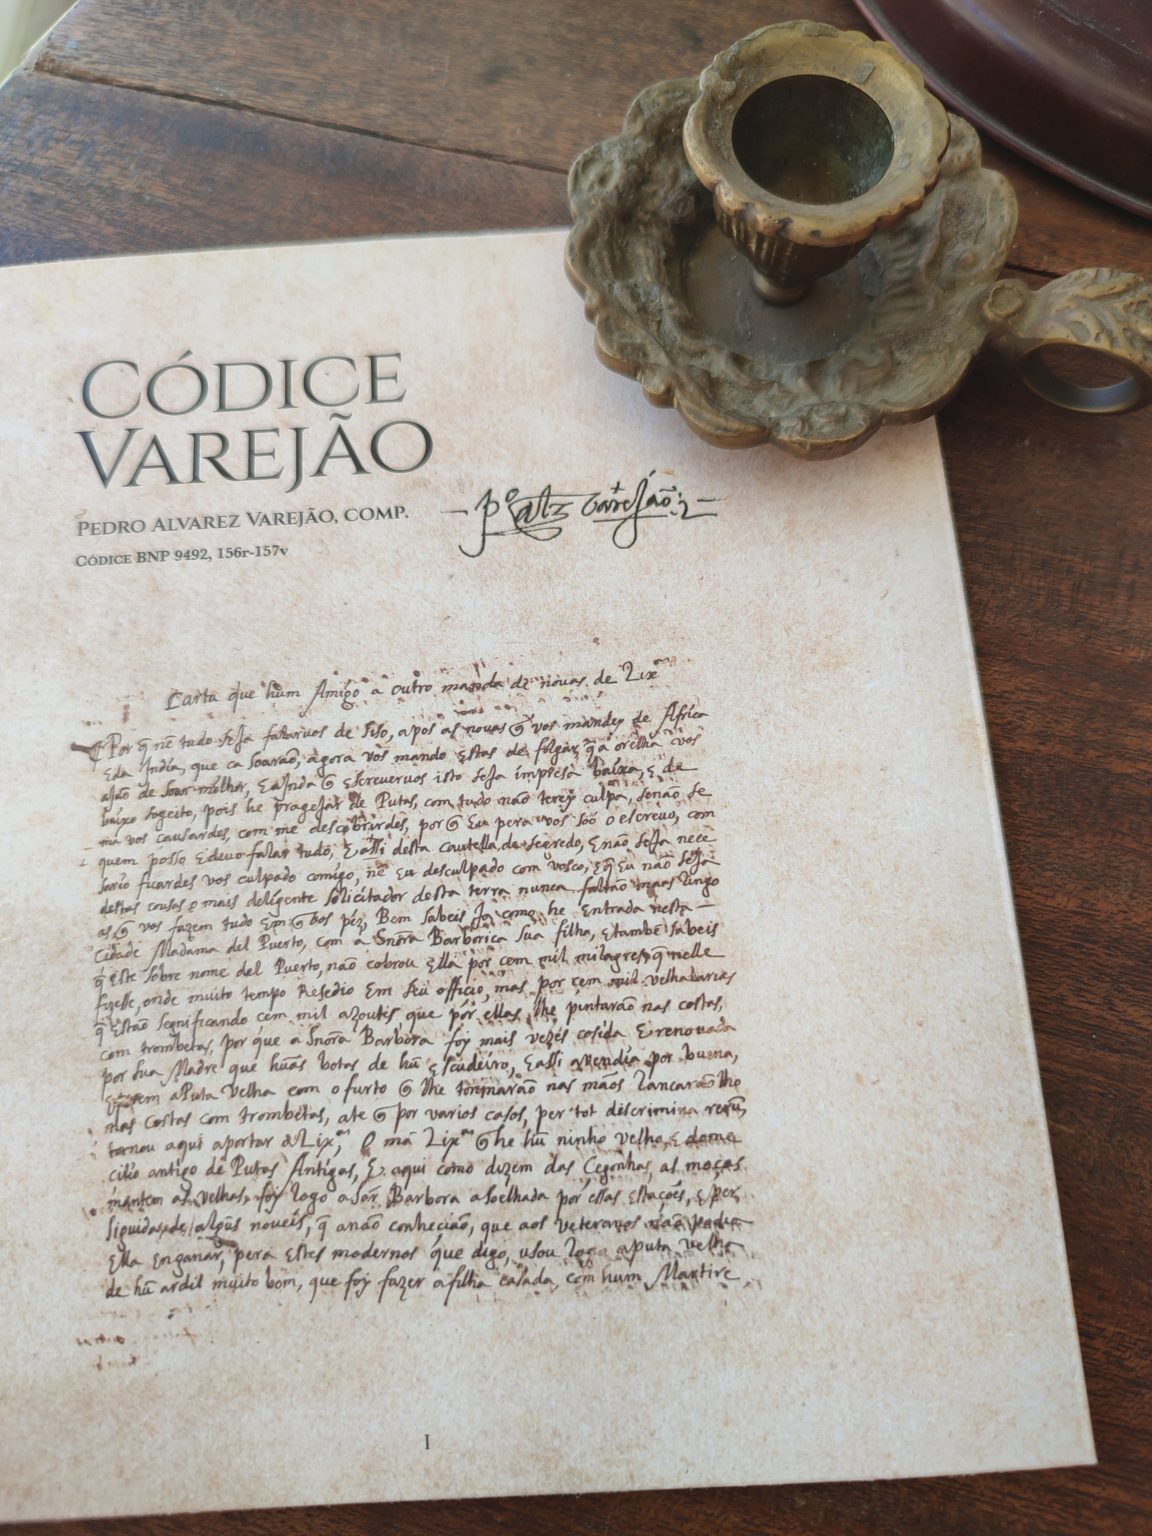 CÓDICE
VAREJÃO
PEDRO ALVAREZ VAREJÃO, COMP.
CÓDICE BNP 9492, 156r-157v
Carta que hum Amigo a outro manda de novas de Lixª
Por q̃ nẽ tudo seJa falarvos de siso, apos as novas q̃ vos mandey de Africa
E da India, que ca soarão, agora vos mando Estas de folgar, q̃ a orelha vos
ajão de soar milhor, E aJnda q̃ Escrevervos isto seJa impresa baixa, E de
baixo sogeito, pois he prageJar de Putas, com tudo não terey culpa, senão se
ma vos causardes, com me descobrirdes, por q̃ Eu pera vos soo o escrevo, com
quem posso E devo falar tudo, E assi desta cautella de segredo, E não seJa nece
sario ficardes vos culpado comigo, nẽ Eu desculpado com vosco, E q̃ Eu não seJa
destas cousas o mais deligente solicitador desta terra nunca faltão
as q̃ vos fazem tudo Em q̃ bos péz, Bem sabeis Ja como he Entrada nesta
Cidade Madama del Puerto, com a Snõra Barborica sua filha, E tambẽ sabeis
q̃ Este sobre nome del Puerto, não cobrou Ella por cem mil milagres, q̃ nelle
fizesse, onde muito tempo Resedio Em seu officio, mas por cem mil velhacarias
q̃ Estão segnificando cem mil azoutes que por ellas lhe pintarão nas costas,
com trombetas, por que a Snõra Barbora foy mais vezes cosida E renovada
por sua Madre que hũas botas de hũ Escudeiro, E assi a vendia por buena,
E a Puta velha com o furto q̃ lhe tornarão nas mãos lancarão lho
nas costas com trombetas, ate q̃ por varios casos, per tot discrimina rerũ,
tornou aqui aportar a Lixª, E como Lixª q̃ he hũ ninho velho, E dome
cilio antigo de Putas Antigas, E aqui como dizem das Cegonhas, as moças
mantem as velhas, foy logo a Sõra Barbora asoelhada por essas Estações, E per
siguida de algũs noveis, q̃ a não conhecião, que aos veteranos não podia
Ella Enganar, pera Estes modernos que digo, usou logo a puta velha
de hũ ardil muito bom, que foy fazer a filha casada, com hum Martire
I